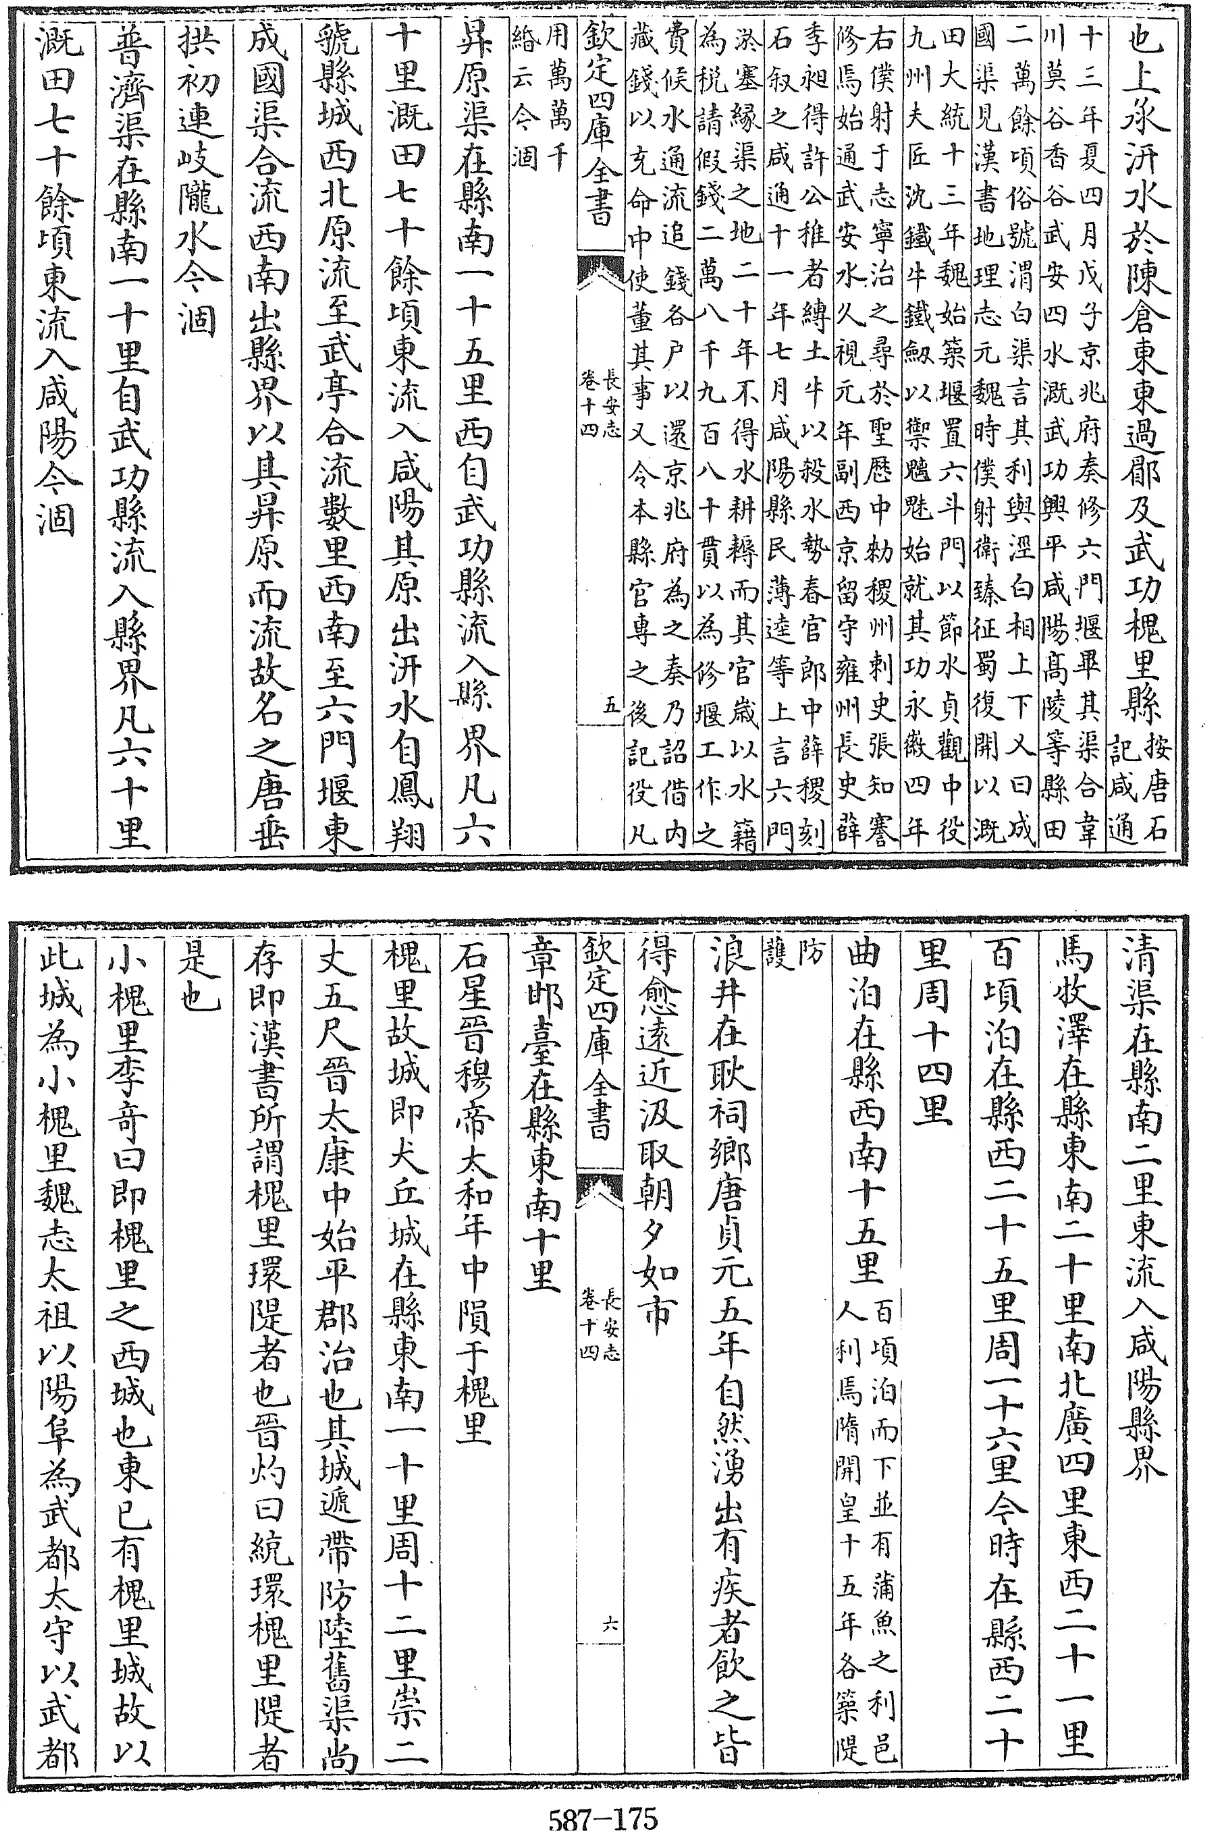 也上承汧水於陳倉東東過郿及武功槐里縣按唐石
記咸通
十三年夏四月戊子京兆府奏修六門堰畢其渠合韋
川莫谷香谷武安四水溉武功興平咸陽高陵等縣田
二萬餘頃俗號渭白渠言其利與涇白相上下又曰成
國渠見漢書地理志元魏時僕射衛臻征蜀復開以溉
田大統十三年魏始築堰置六斗門以節水貞觀中役
九州夫匠沈鐵牛鐵劔以禦魑魅始就其功永徽四年
右僕射于志寧治之尋於聖厯中勅稷州刺史張知謇
修焉始通武安水久視元年副西京留守雍州長史薛
季昶得許公稚者縛土牛以殺水勢春官郎中薛稷刻
石叙之咸通十一年七月咸陽縣民薄逵等上言六門
淤塞緣渠之地二十年不得水耕耨而其官歲以水籍
為税請假錢二萬八千九百八十貫以為修堰工作之
費候水通流追錢各户以還京兆府為之奏乃詔借内
藏錢以充命中使董其事又令本縣官專之後記役凡
欽定四庫全書
長安志
卷十四
五
用萬萬千
緡云今涸
昇原渠在縣南一十五里西自武功縣流入縣界凡六
十里溉田七十餘頃東流入咸陽其原出汧水自鳳翔
虢縣城西北原流至武亭合流數里西南至六門堰東
成國渠合流西南出縣界以其昇原而流故名之唐垂
拱初連岐隴水今涸
普濟渠在縣南一十里自武功縣流入縣界凡六十里
溉田七十餘頃東流入咸陽今涸
清渠在縣南二里東流入咸陽縣界
馬牧澤在縣東南二十里南北廣四里東西二十一里
百頃泊在縣西二十五里周一十六里今時在縣西二十
里周十四里
曲泊在縣西南十五里百頃泊而下並有蒲魚之利邑
人利焉隋開皇十五年各築隄
防
護
浪井在耿祠鄉唐貞元五年自然湧出有疾者飲之皆
得愈遠近汲取朝夕如市
欽定四庫全書
長安志
卷十四
六
章邯臺在縣東南十里
石星晉穆帝太和年中隕于槐里
槐里故城即犬丘城在縣東南一十里周十二里崇二
丈五尺晉太康中始平郡治也其城遞帶防陸舊渠尚
存即漢書所謂槐里環隄者也晉灼曰統環槐里隄者
是也
小槐里李奇曰即槐里之西城也東已有槐里城故以
此城為小槐里魏志太祖以陽阜為武都太守以武都
587-175